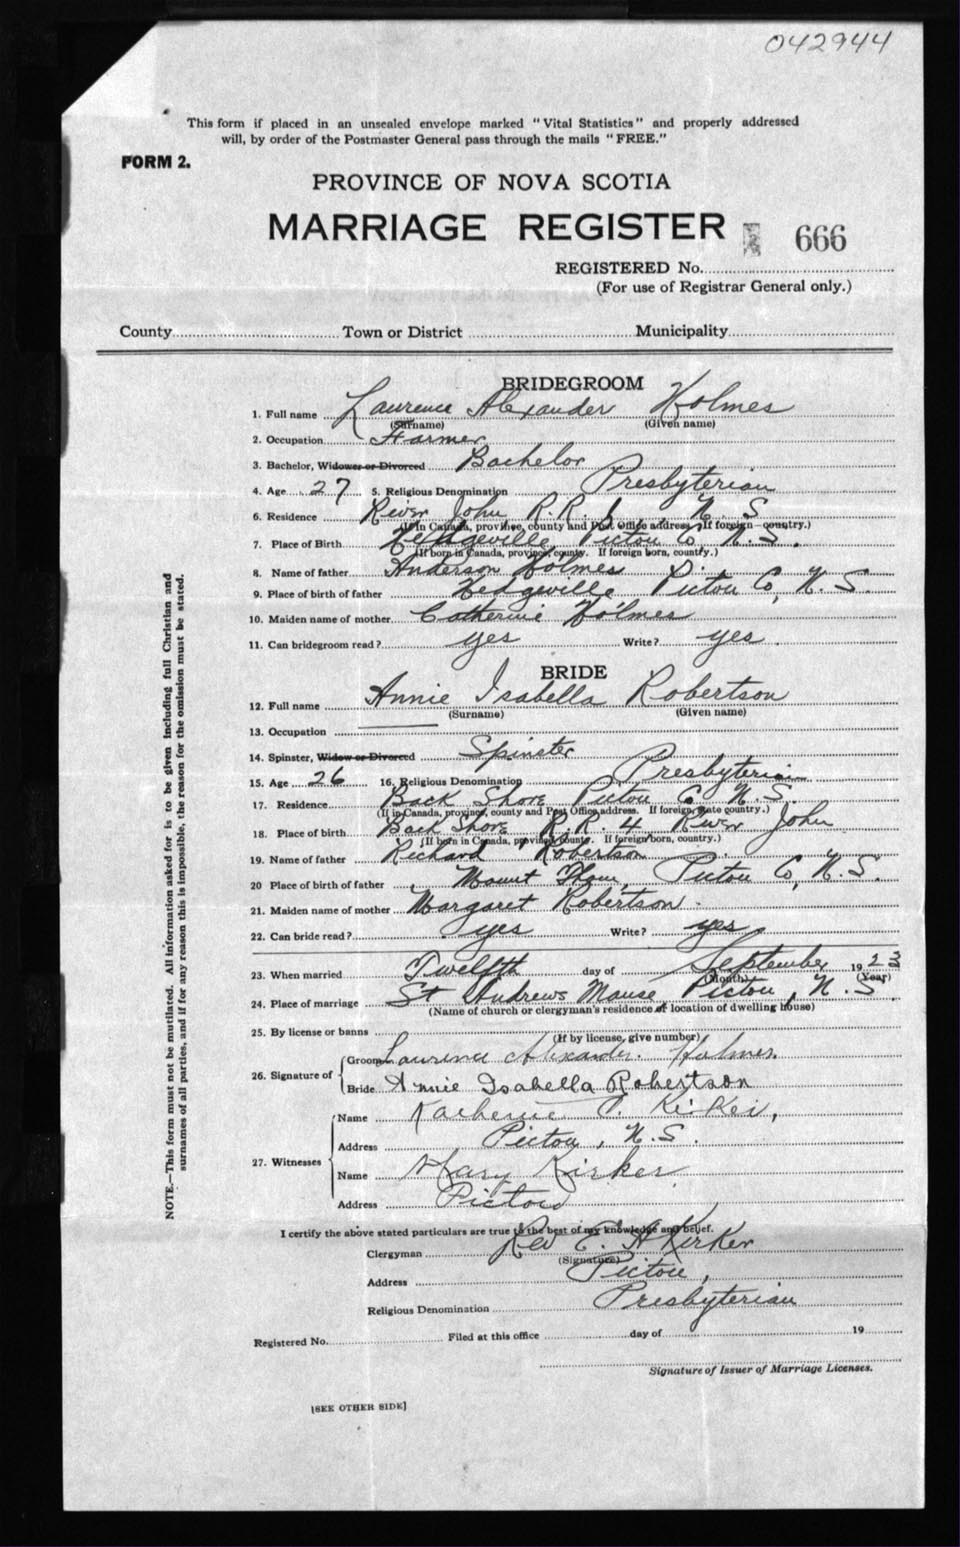 042944
This form if placed in an unsealed envelope marked "Vital Statistics" and properly addressed
will, by order of the Postmaster General pass through the mails "FREE."
FORM 2.
PROVINCE OF NOVA SCOTIA
MARRIAGE REGISTER 666
REGISTERED No.
(For use of Registrar General only.)
County Town or District Municipality
BRIDEGROOM
1. Full name Laurence Alexander Holmes
(Surname) (Given name)
2. Occupation Farmer
3. Bachelor, Widower or Divorced Bachelor
4. Age 27 5. Religious Denomination Presbyterian
6. Residence River John R.R. 1 N.S
(If in Canada, province, county and Post Office address. If foreign—country.)
7. Place of Birth Hedgeville Pictou Co N.S.
(If born in Canada, province, county. If foreign born, country.)
8. Name of father Anderson Holmes
9. Place of birth of father Hedgeville Pictou Co, N.S.
10. Maiden name of mother Catherine Holmes
11. Can bridegroom read? yes Write? yes
BRIDE
12. Full name Annie Isabella Robertson
(Surname) (Given name)
13. Occupation
14. Spinster, Widow or Divorced Spinster
15. Age 26 16. Religious Denomination Presbyterian
17. Residence Back Shore Pictou Co N.S.
(If in Canada, province, county and Post Office address. If foreign, state country.)
18. Place of birth Back Shore R.R. 4 River John
(If born in Canada, province, county. If foreign born, country.)
19. Name of father Richard Robertson
20 Place of birth of father Mount Thom, Pictou Co, N.S.
21. Maiden name of mother Margaret Robertson
22. Can bride read? yes Write? yes
23. When married Twelfth day of September 192
(Month) (Year)
24. Place of marriage St Andrews Manse Pictou, N.S.
(Name of church or clergyman's residence or location of dwelling house)
25. By license or banns
(If by license, give number)
26. Signature of Groom Laurence Alexander. Holmes.
Bride Annie Isabella Robertson
27. Witnesses Name Katherine Kirker,
Address Pictou, N.S.
Name Mary Kirker
Address Pictou
I certify the above stated particulars are true to the best of my knowledge and belief.
Clergyman Rev E. A Kirker
(Signature)
Address Pictou,
Religious Denomination Presbyterian
Registered No. Filed at this office day of 19
Signature of Issuer of Marriage Licenses.
[SEE OTHER SIDE]
NOTE.—This form must not be mutilated. All information asked for is to be given including full Christian and
surnames of all parties, and if for any reason this is impossible, the reason for the omission must be stated.